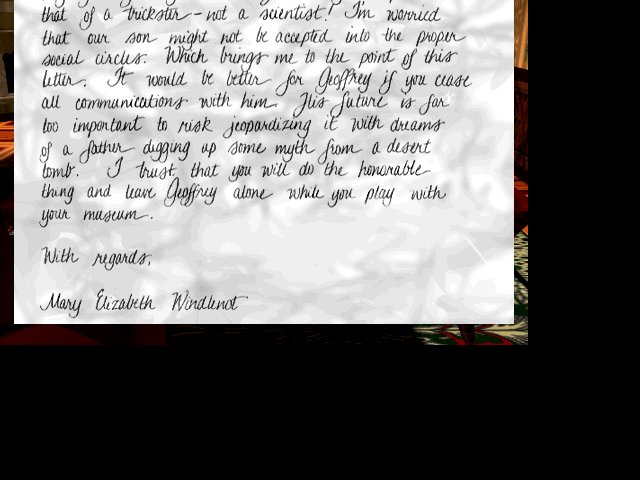 that of a trickster - not a scientist! I'm worried
that our son might not be accepted into the proper
social circles. Which brings me to the point of this
letter. It would be better for Geoffrey if you cease
all communications with him. His future is far
too important to risk jeopardizing it with dreams
of a father digging up some myth from a desert
tomb. I trust that you will do the honorable
thing and leave Geoffrey alone while you play with
your museum.
With regards,
Mary Elizabeth Windlenot